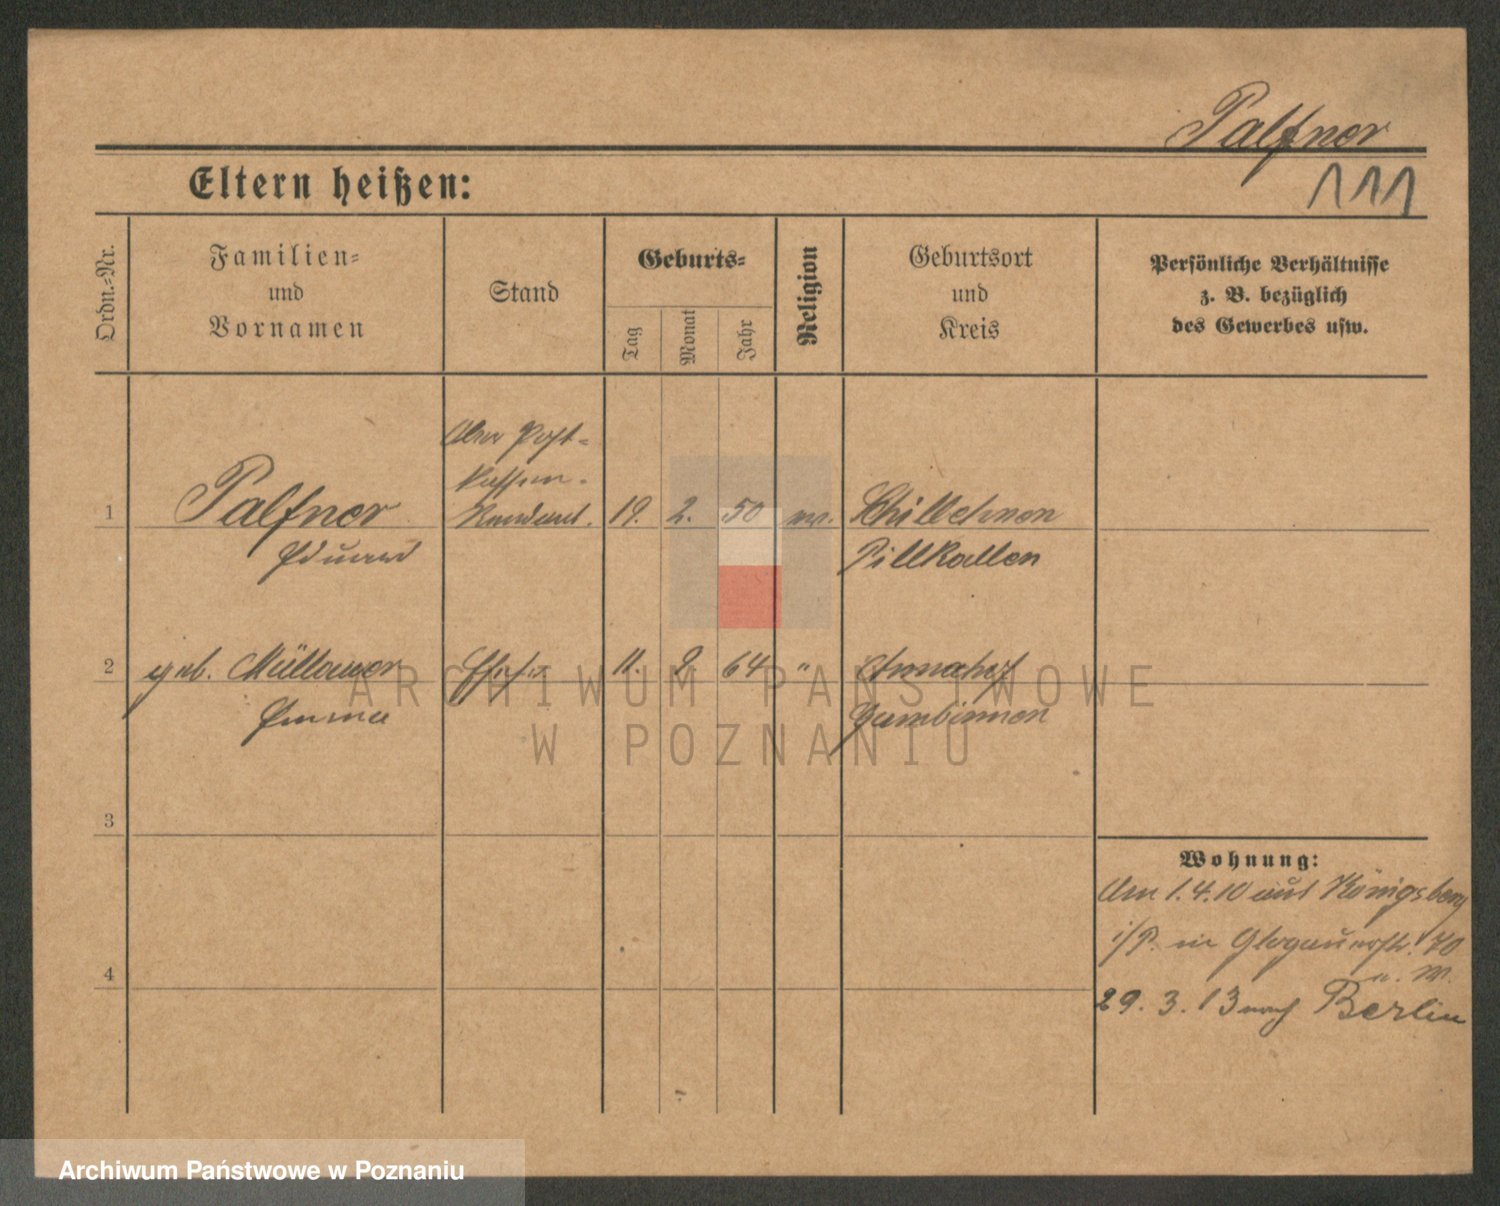 Palfner
111
Eltern heißen:
Ordn.-Nr.
Familien-
und
Vornamen
Stand
Geburts-
Tag
Monat
Jahr
Religion
Geburtsort
und
Kreis
Persönliche Verhältnisse
z. B. bezüglich
des Gewerbes usw.
Ober Post-
Kassen-
1 Palfner Rendant. 19. 2. 50 ev. Schillehnen
Eduard Pillkallen
2 geb. Müllauer Ehefr. 11. 9. 64 "
Emma Gumbinnen
3
Wohnung:
Am 1.4.10 aus Königsberg
i/P. in Glogauerstr. 70
4
29. 3. 13 nach Berlin
ARCHIWUM PAŃSTWOWE
W POZNANIU
Archiwum Państwowe w Poznaniu